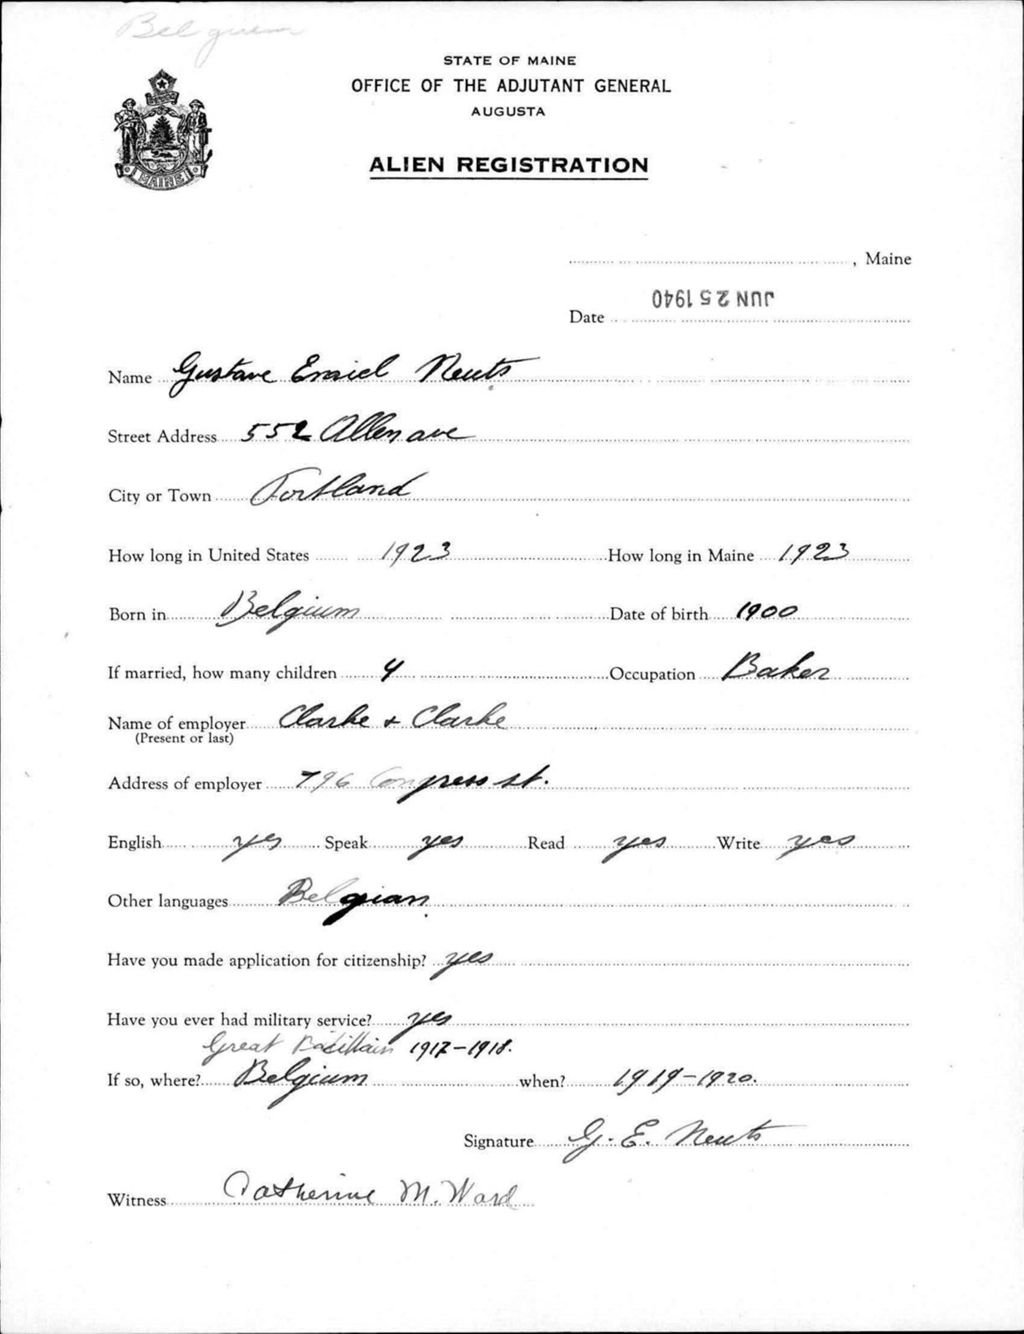 Belgium
STATE OF MAINE
OFFICE OF THE ADJUTANT GENERAL
AUGUSTA
ALIEN REGISTRATION
MAINE
, Maine
Date JUN 25 1940
Name Gustave Emiel Neuts
Street Address 552 Allen ave
City or Town Portland
How long in United States 1923 How long in Maine 1923
Born in Belgium Date of birth 1900
If married, how many children 4 Occupation Baker
Name of employer Clarke + Clarke
(Present or last)
Address of employer 796 Congress st.
English yes Speak yes Read yes Write yes
Other languages Belgian
Have you made application for citizenship? yes
Have you ever had military service? yes
Great 1917-1918.
If so, where? Belgium when? 1919-1920.
Signature G. E. Neuts
Witness Catherine M. Ward